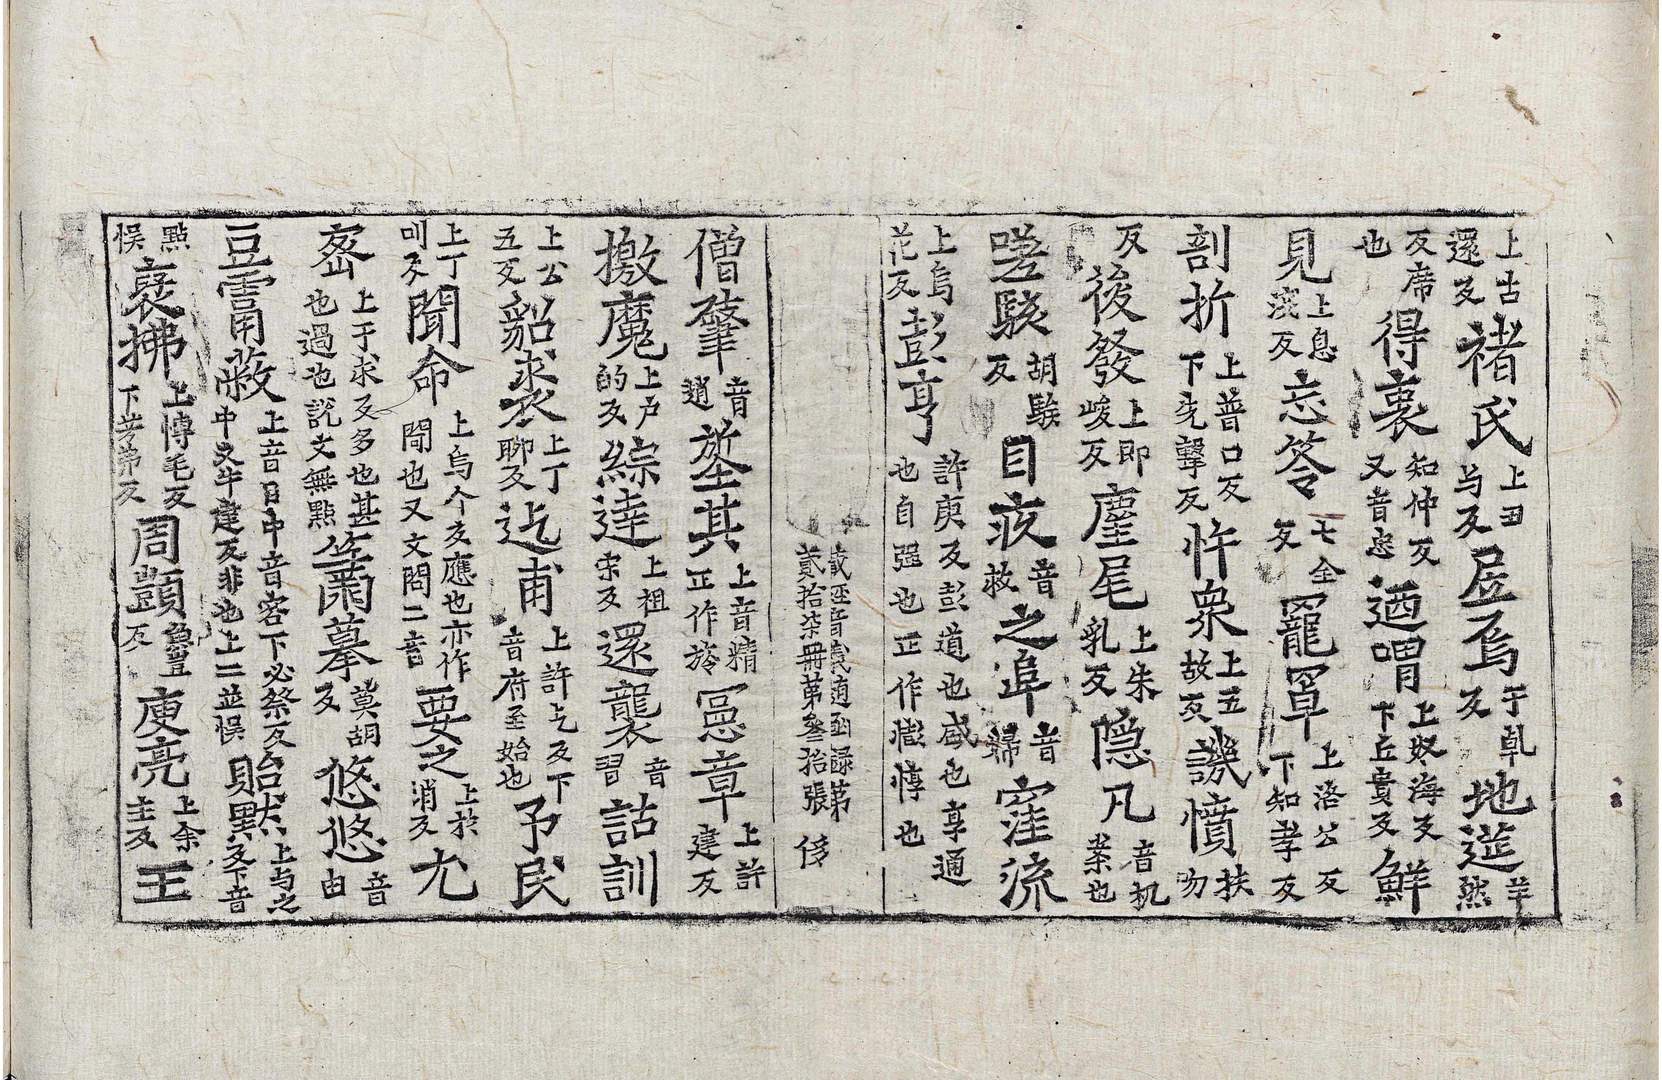 上古還反褚氏上丑与反𡱈焉于乹反地𨒬羊㷼
反席也得衷知仲反又音忠迺喟上奴海反下丘貴反鮮
見上息淺反忘筌七全反罷罩上洛公反下知孝反
剖折上普口反下先擊反忤衆上五故反譏憤扶勿
反後發上即峻反麈尾上朱乳反隐凡音机案也
嗟駭胡駭反目㳄音救之埠音歸窪流
上烏花反彭亨許庚反彭道也盛也亨通也自强也正作膨悙也
藏経音義随函録第貳拾柒冊第叁拾張 侈
僧肇音趙旍其上音精正作旌冕章上許建反
撽魔上户的反綜達上祖宋反還襲音習詁訓
上公五反貂裘上丁聊反迄甫上許乞反下音府至始也予民
上丁叫反聞命上烏个反應也亦作問也又文問二音要之上於消反尤
宻上于求反多也甚也過也說文無點笁蘭摹莫胡反悠悠音由
豆霤蔽上音目中音宻下必祭反中又牛建反非也上二並悮貽默上与之反下音
點悮裦拂上愽毛反下芳弗反周顗魚豈反庾亮上余主反王